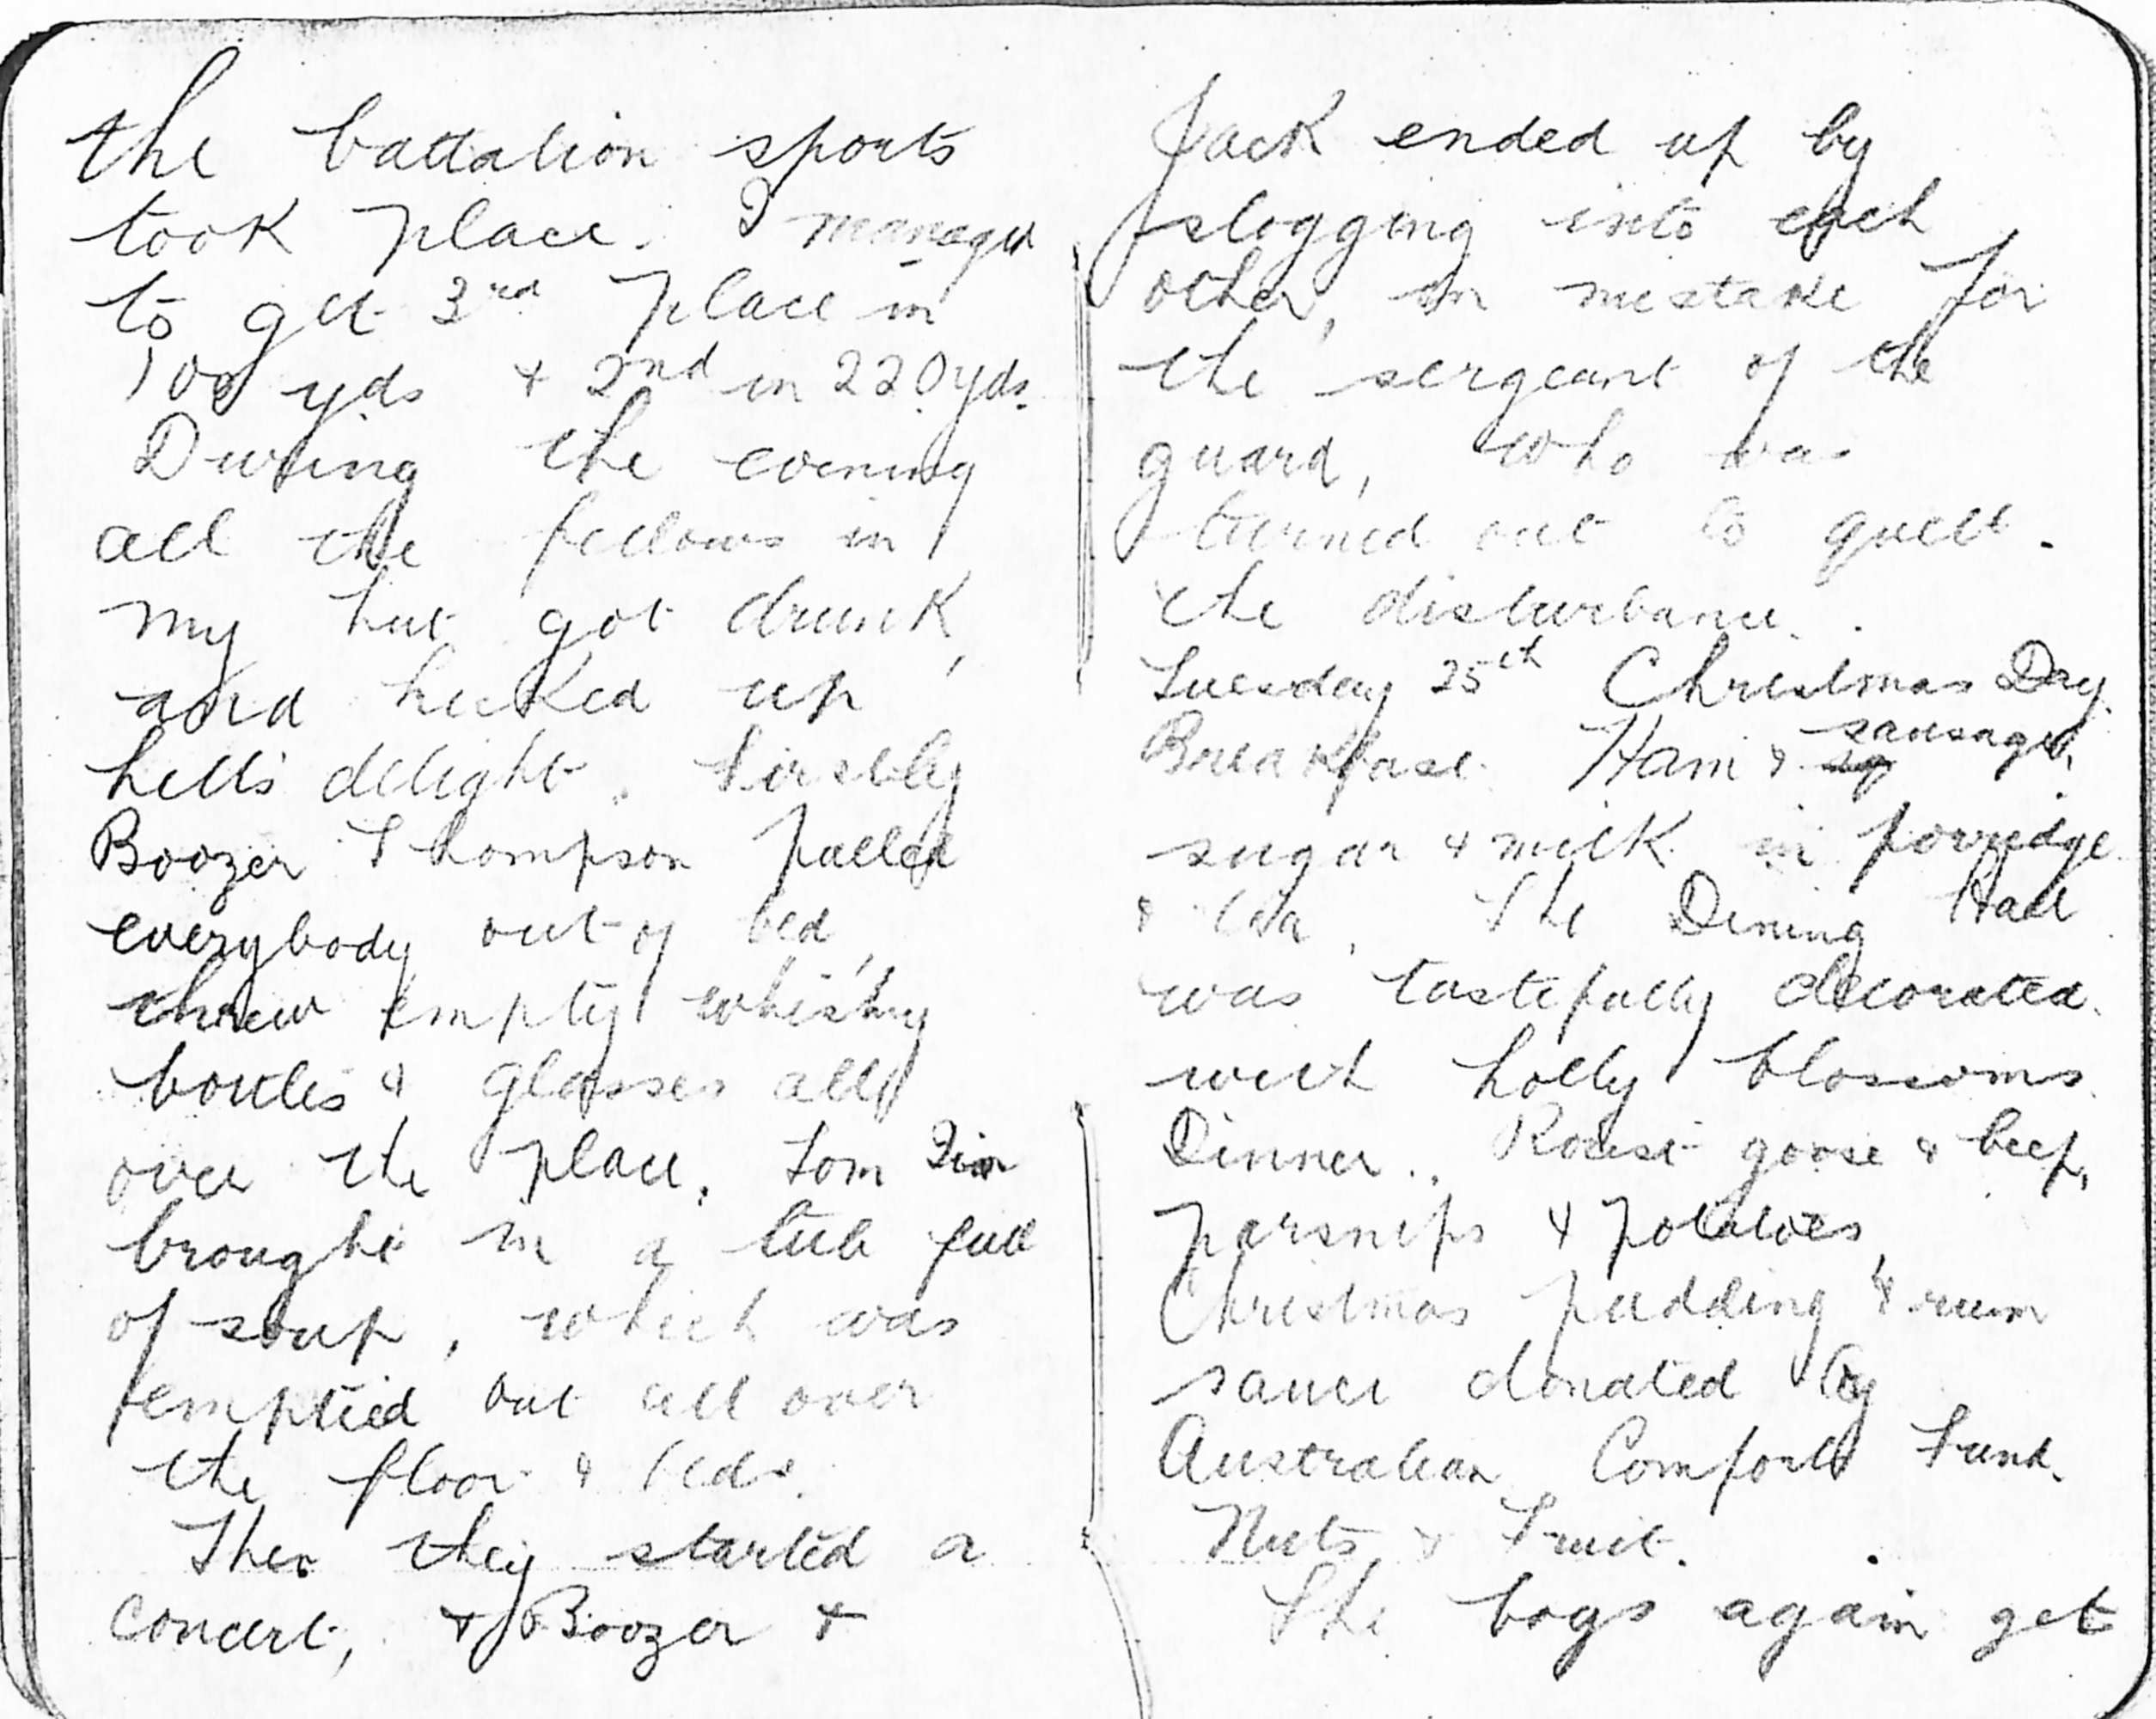 the battalion sports
took place. I managed
to get 3rd place in
100 yds & 2nd in 220 yds.
During the evening
all the fellows in
my hut got drunk,
and kicked up
hell's delight. Firstly
Boozer Thompson pulled
everybody out of bed,
threw empty whisky
bottles & glasses all
over the place. Tom
brought in a tub full
of soup, which was
emptied out all over
the floor & beds.
Then they started a
concert, & Boozer &
Jack ended up by
slogging into each
other, in mistake for
the sergeant of the
guard, who was
turned out to quell
the disturbance.
Tuesday 25th Christmas Day.
Breakfast. Ham & sausages,
sugar & milk in porridge
& tea. The Dining Hall
was tastefully decorated
with holly blossoms.
Dinner.. Roast goose & beef,
parsnips & potatoes,
Christmas pudding & rum
sauce donated by
Australian Comforts Fund.
Nuts & Fruit.
The boys again get